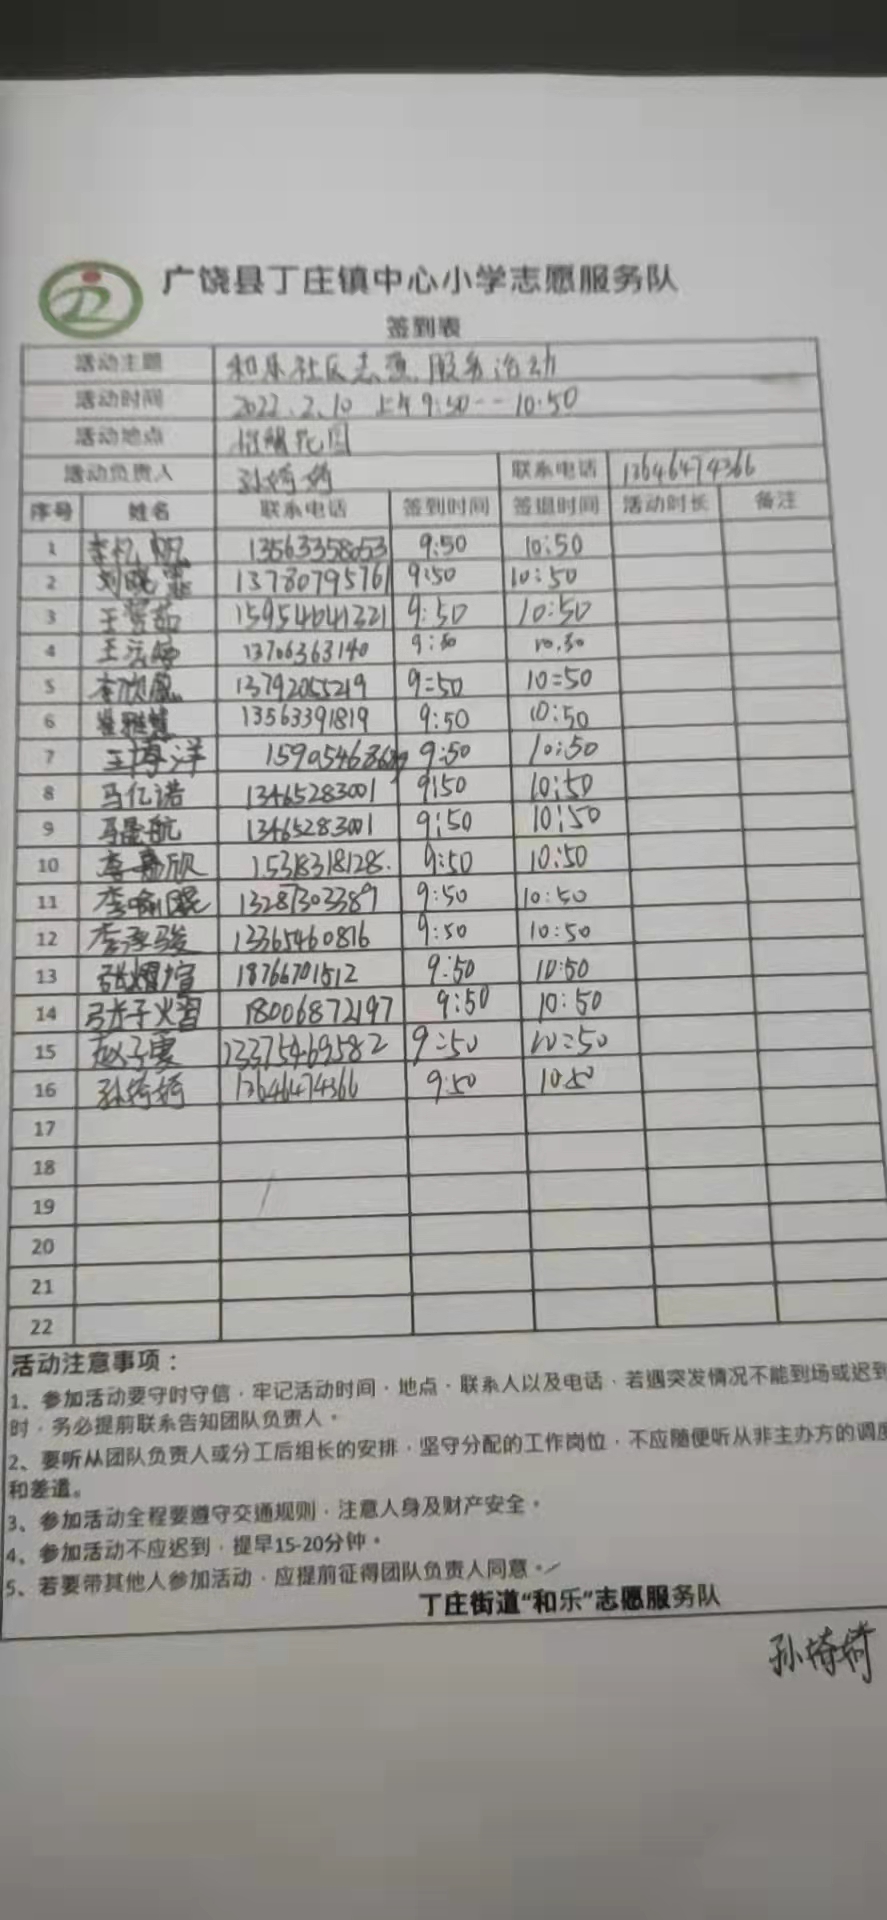 广饶县丁庄镇中心小学志愿服务队
签到表
活动主题 和乐社区志愿服务活动
活动时间 2022.2.10 上午9:50--10:50
活动地点 花园
活动负责人 孙 联系电话 13646474366
序号 姓名 联系电话 签到时间 签退时间 活动时长 备注
1 李忆帆 13563358053 9:50 10:50
2 刘晓霏 13780795761 9:50 10:50
3 王 茹 15954641321 9:50 10:50
4 王 13706363140 9:50 10.50
5 李欣 13792055219 9:50 10:50
6 崔雅慧 13563391819 9:50 10:50
7 王博洋 9:50 10:50
8 马亿诺 13465283001 9:50 10:50
9 马 航 13465283001 9:50 10:50
10 李嘉欣 15318318128. 9:50 10:50
11 李 13287303389 9:50 10:50
12 李 骏 13365460816 9:50 10:50
13 张 18766701512 9:50 10:50
14 张子熠 18006872197 9:50 10:50
15 赵子 13375469582 9:50 10:50
16 孙 13646474366 9:50 10:50
17
18
19
20
21
22
活动注意事项：
1、参加活动要守时守信，牢记活动时间、地点、联系人以及电话，若遇突发情况不能到场或迟到
时，务必提前联系告知团队负责人。
2、要听从团队负责人或分工后组长的安排，坚守分配的工作岗位，不应随便听从非主办方的调度
和差遣。
3、参加活动全程要遵守交通规则，注意人身及财产安全。
4、参加活动不应迟到，提早15-20分钟。
5、若要带其他人参加活动，应提前征得团队负责人同意。
丁庄街道“和乐”志愿服务队
孙